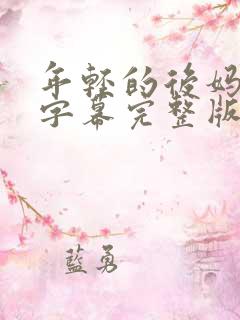 年轻的后妈
字幕完整版
蓝勇